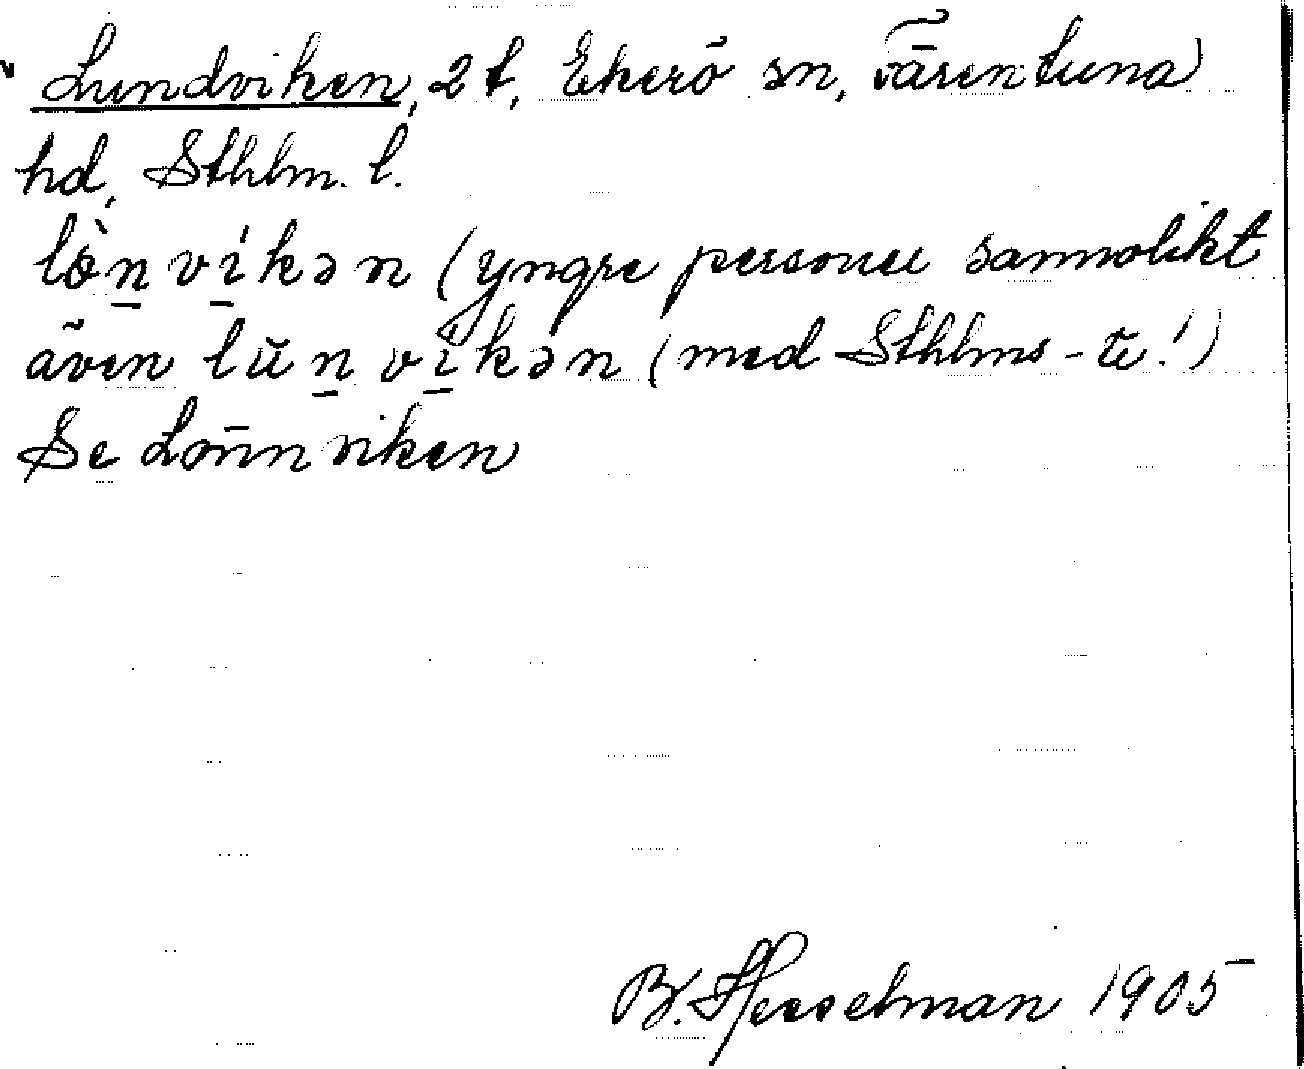 Lundviken, 2 t, Ekerö sn, Färentuna
hd, Sthlm. l.
lön̠ vi̠kən (yngre personer sannolikt
även lŭn̠ vi̠kən (med Sthlms-te!)
Se Lönnviken
B. Hesselman 1905